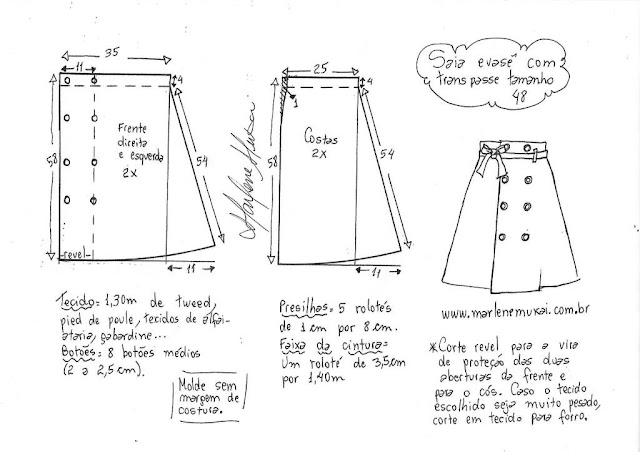 Saia evasê com
transpasse tamanho
48
35
11
4
58
Frente
direita
e esquerda
2x
54
-revel-
11
Marlene Mukai
25
4
1
58
Costas
2x
54
11
www.marlenemukai.com.br
Tecido= 1,30m de tweed,
pied de poule, tecidos de alfai-
ataria, gabardine...
Botões= 8 botões médios
(2 a 2,5 cm).
Molde sem
margem de
costura.
Presilhas= 5 rolotés
de 1 cm por 8 cm.
Faixa da cintura=
Um roloté de 3,5cm
por 1,40m
*Corte revel para a vira
de proteção das duas
aberturas da frente e
para o cós. Caso o tecido
escolhido seja muito pesado,
corte em tecido para forro.